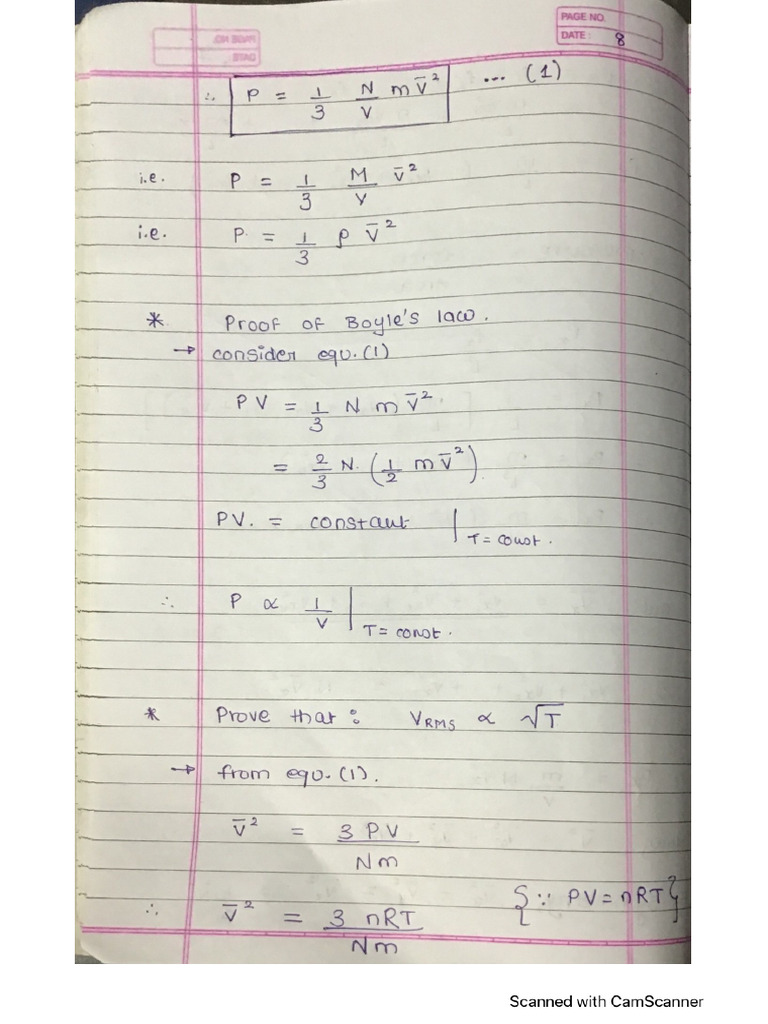 PAGE NO.
DATE: 8
∴ P = 1/3 N/V m v̄² ... (1)
i.e. P = 1/3 M/V v̄²
i.e. P. = 1/3 ρ v̄²
* Proof of Boyle's law.
→ consider equ. (1)
PV = 1/3 N m v̄²
= 2/3 N. (1/2 m v̄²)
PV. = constant | T = const.
∴ P ∝ 1/V | T = const.
* Prove that : V_RMS ∝ √T
→ from equ. (1).
v̄² = 3 PV / Nm
∴ v̄² = 3 nRT / Nm {∵ PV = nRT}
Scanned with CamScanner